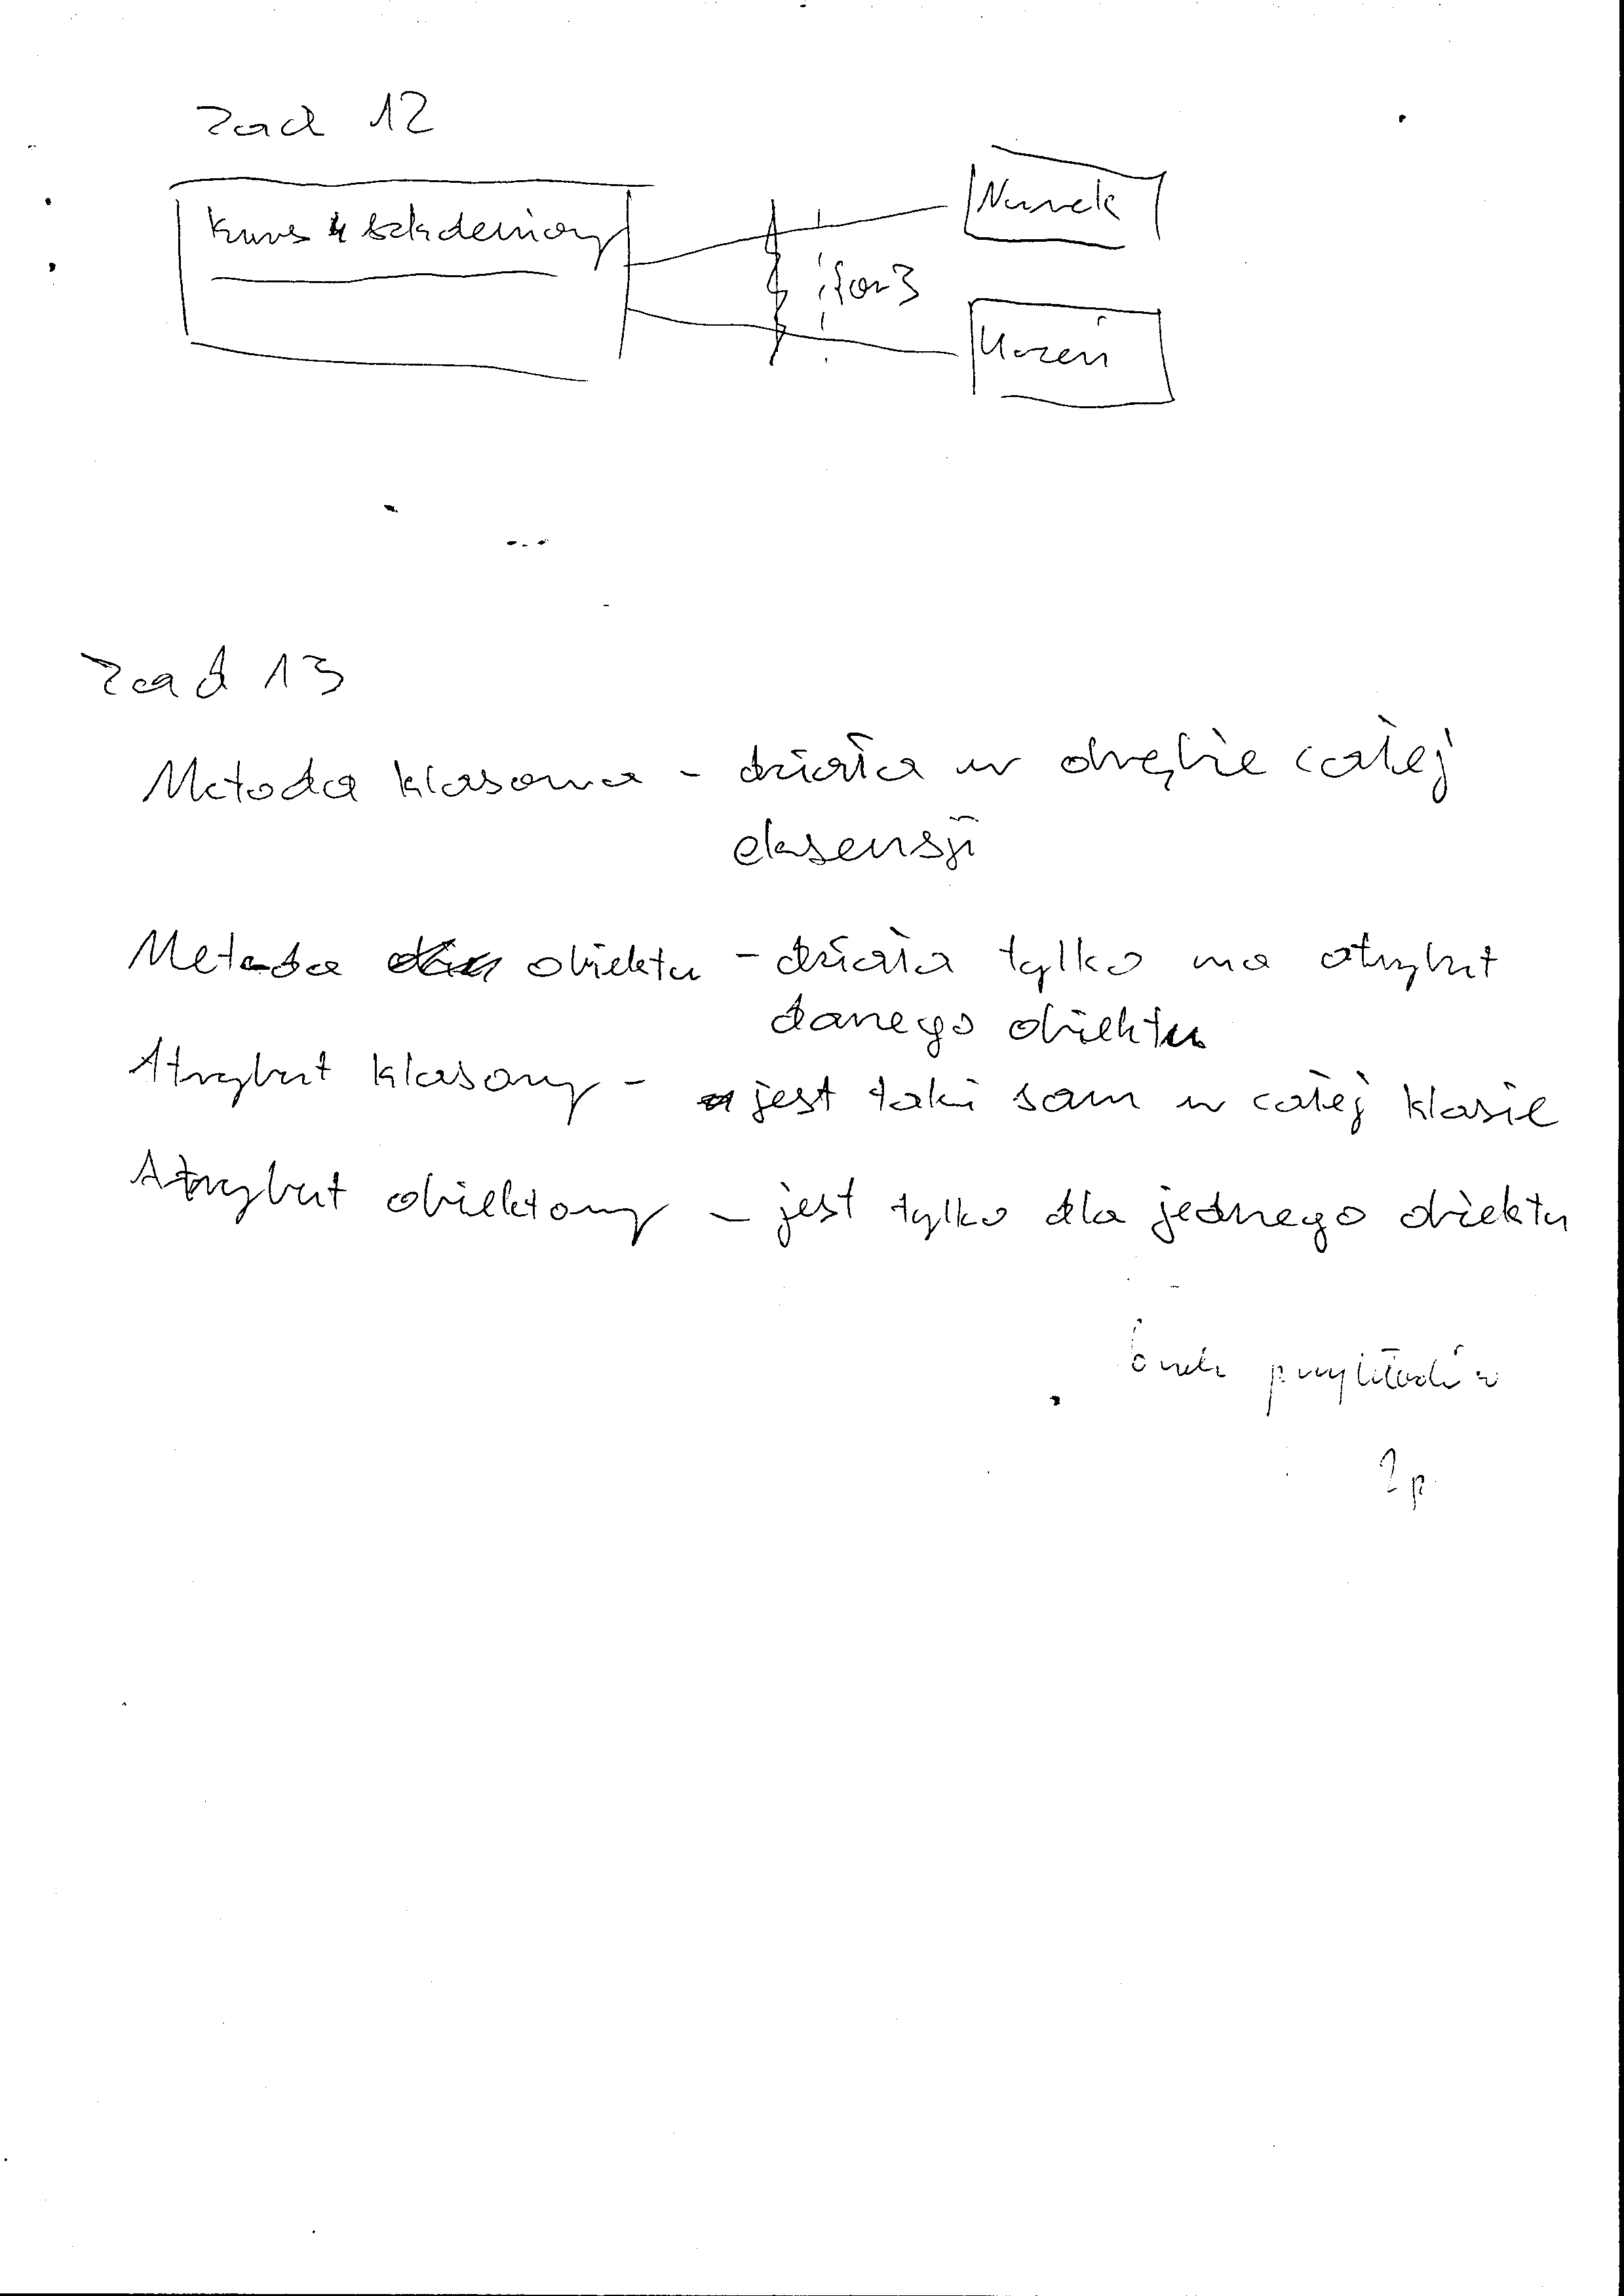 zad 12
Kurs szkoleniowy
Nurek
{or}
Uczeń
zad 13
Metoda klasowa - działa w obrębie całej
eksensji
Metoda obiektu - działa tylko na atrybut
danego obiektu
Atrybut klasowy - jest taki sam w całej klasie
Atrybut obiektowy - jest tylko dla jednego obiektu
brak przykładów
2p.